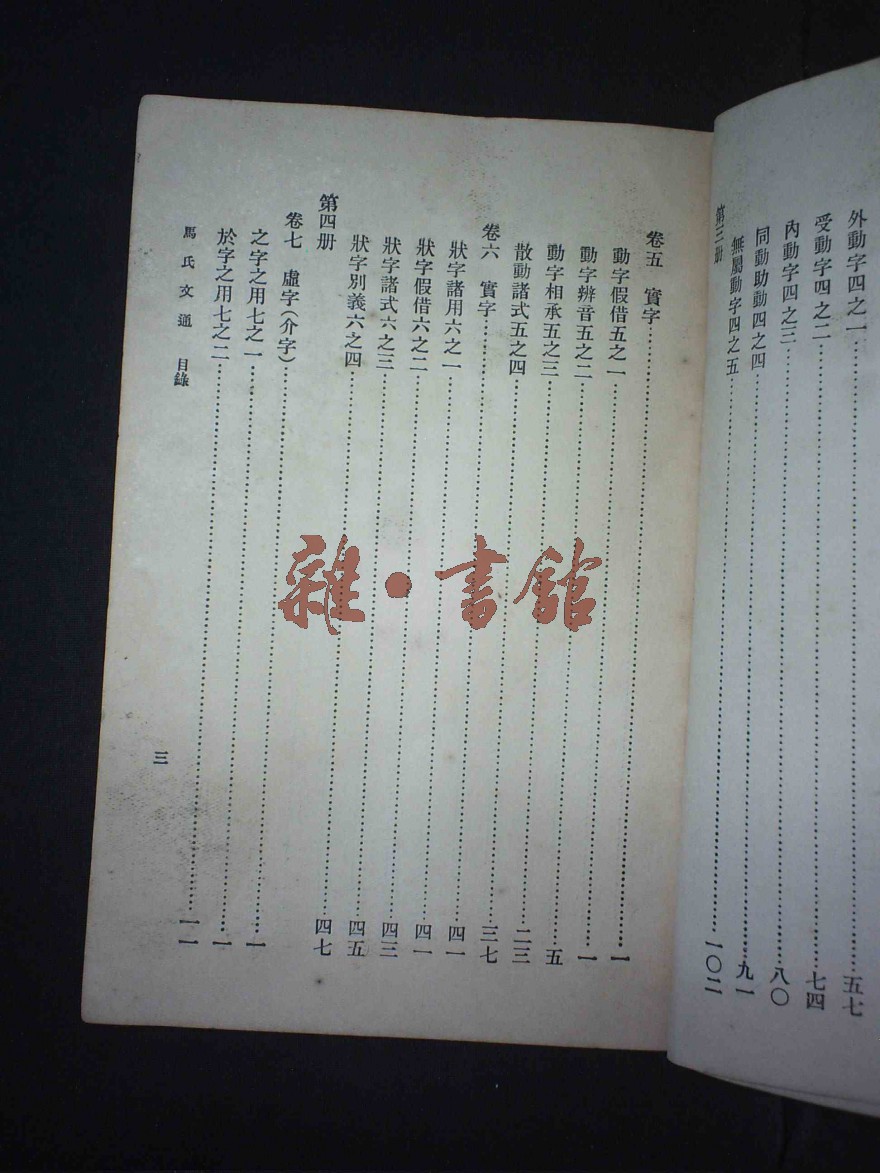 外動字四之一……五七
受動字四之二……七四
內動字四之三……八〇
同動助動四之四……九一
無屬動字四之五……一〇二
第三册
卷五 實字……一
動字假借五之一……一
動字辨音五之二……五
動字相承五之三……二三
散動諸式五之四……三七
卷六 實字……四一
狀字諸用六之一……四一
狀字假借六之二……四三
狀字諸式六之三……四五
狀字別義六之四……四七
第四册
卷七 虛字(介字)……一
之字之用七之一……一
於字之用七之二……一一
馬氏文通 目錄
三
雜·書館